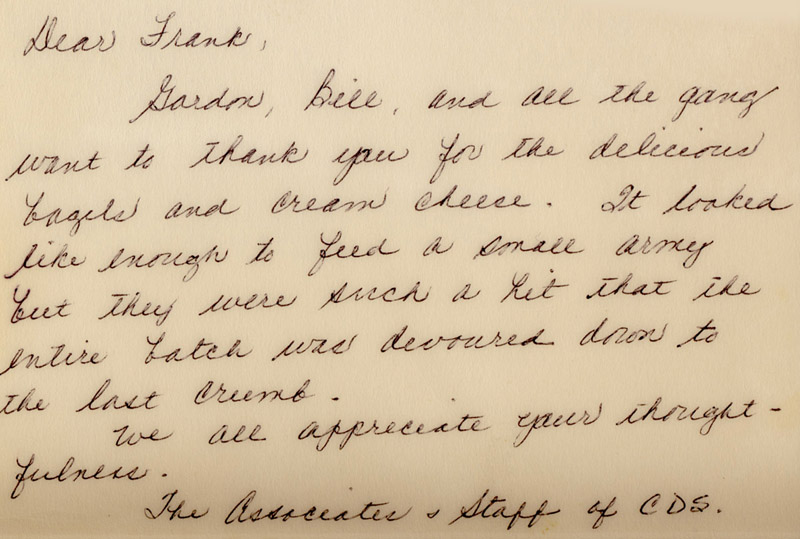 Dear Frank,
Gordon, Bill, and all the gang
want to thank you for the delicious
bagels and cream cheese. It looked
like enough to feed a small army
but they were such a hit that the
entire batch was devoured down to
the last crumb.
We all appreciate your thought-
fulness.
The Associates & Staff of CDS.